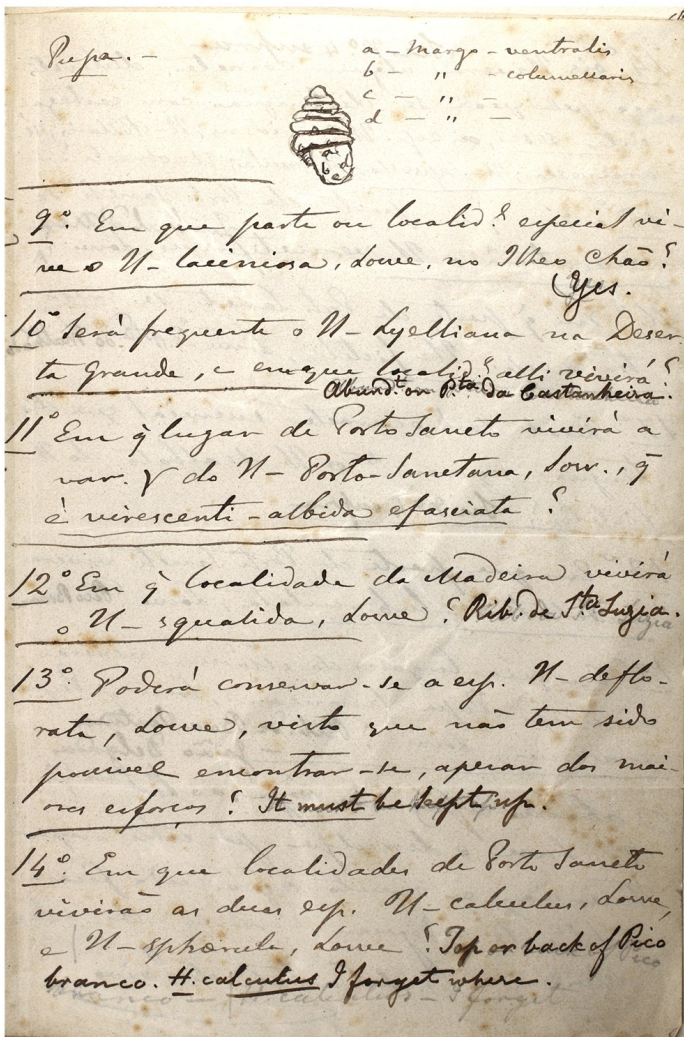 Pupa. -
a - margo - ventralis
b - " - columellaris
c - "
d - " -
9º. Em que parte ou localid.e especial vi-
ve o H- laciniosa, Lowe, no Ilheo Chão?
Yes.
10º Será frequente o H- Lyelliana na Deser-
ta Grande, e em que localid.e alli vivirá?
Abund.t on P.ta da Castanheira.
11º Em q̃ lugar de Porto Sancto vivirá a
var. γ do H- Porto-Sanctana, Sow., q̃
é virescenti-albida efasciata?
12º Em q̃ localidade da Madeira vivirá
o H- squalida, Lowe? Rib. de S.ta Luzia.
13º. Poderá conservar-se a esp. H- deflo-
rata, Lowe, visto que não tem sido
possivel encontrar-se, apezar dos mai-
ores esforços? It must be kept up.
14º. Em que localidades de Porto Sancto
vivirão as duas esp. H- calculus, Lowe,
e H- sphærula, Lowe? Top or back of Pico
branco. H. calculus I forget where.